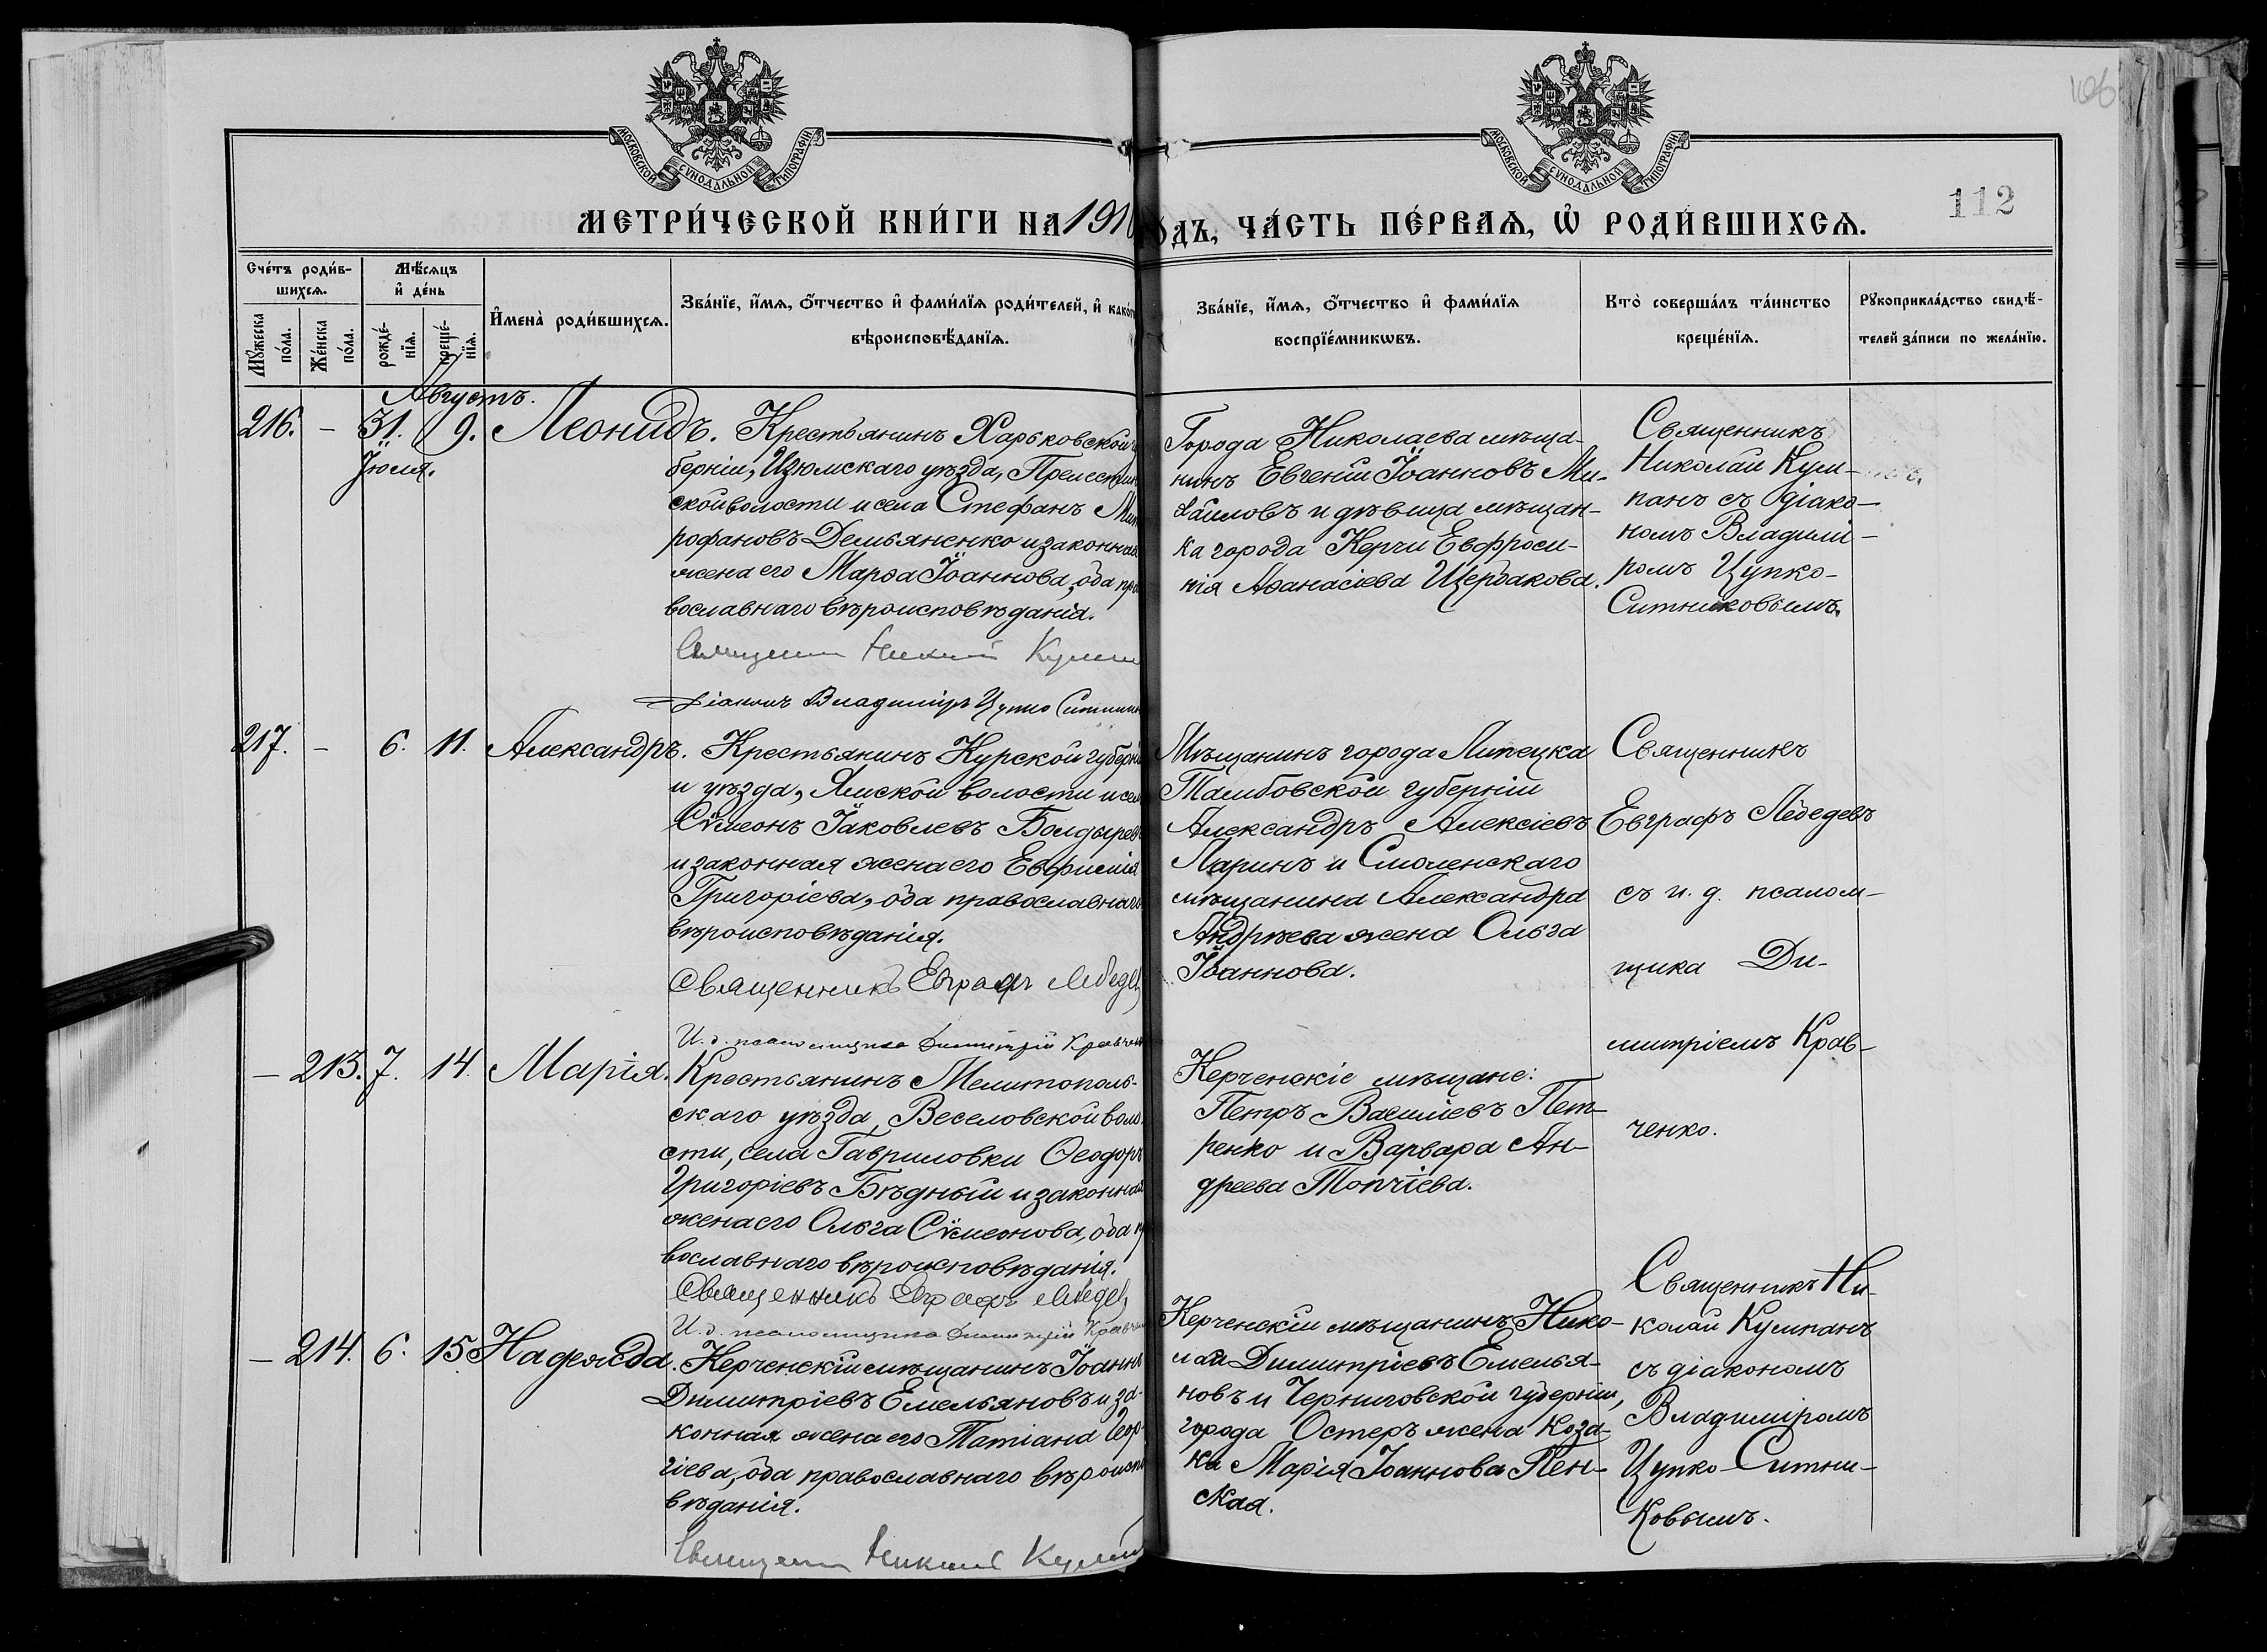 106
МОСКОВСКОЙ СѴНОДАЛЬНОЙ ТИПОГРАФІИ
МОСКОВСКОЙ СѴНОДАЛЬНОЙ ТИПОГРАФІИ
112
МЕТРИ́ЧЕСКОЙ КНИ́ГИ НА 191
ОДЪ, ЧА́СТЬ ПЕ́РВАѦ, Ѡ҆ РОДИ́ВШИХСѦ.
Сче́тъ роди́в-
шихсѧ.
Мꙋ́жеска
по́ла.
Же́нска
по́ла.
Мѣ́сѧцъ
и҆ де́нь
рожде́-
нїѧ.
креще́-
нїѧ.
И҆мена̀ роди́вшихсѧ.
Зва́нїе, и҆́мѧ, ѻ҆́тчество и҆ фами́лїѧ роди́телей, и҆ како́г
вѣроисповѣ́данїѧ.
Зва́нїе, и҆́мѧ, ѻ҆́тчество и҆ фами́лїѧ
воспрїе́мникѡвъ.
Кто̀ соверша́лъ та́инство
креще́нїѧ.
Рꙋкоприкла́дство свидѣ́-
телей за́писи по жела́нїю.
Августъ.
216. – 31. 9. Леонидъ.
Іюля.
Крестьянинъ Харьковской г
берніи, Изюмскаго уѣзда,
ской волости и села Стефанъ Мит
рофановъ Демьяненко и законная
жена его Марѳа Іоаннова, оба пра
вославнаго вѣроисповѣданія.
Священникъ Николай Кумпа
Діаконъ Владиміръ Цупко Ситник
Города Николаева мѣща-
нинъ Евгеній Іоанновъ Ми-
хайловъ и дѣвица мѣщан-
ка города Керчи Евфроси-
нія Аѳанасіева Щербакова.
Священникъ
Николай Кум-
панъ съ діако-
номъ Владимі-
ромъ Цупко-
Ситниковымъ.
217. – 6. 11. Александръ.
Крестьянинъ Курской губерні
и уѣзда, Ямской волости и сел
Сѵмеонъ Іаковлевъ Болдырев
и законная жена его Евфимія
Григоріева, оба православнаго
вѣроисповѣданія.
Священникъ Евграфъ Лебедев
И. д. псаломщика Димитрій Кравчен
Мѣщанинъ города Липецка
Тамбовской губерніи
Александръ Алексіевъ
Ларинъ и Смоленскаго
мѣщанина Александра
Андреева жена Ольга
Іоаннова.
Священникъ
Евграфъ Лебедевъ
съ и. д. псалом-
щика Ди-
митріемъ Крав-
ченко.
– 213. 7. 14. Марія.
Крестьянинъ Мелитополь-
скаго уѣзда, Веселовской воло
сти, села Гавриловки Ѳеодоръ
Григоріевъ Бѣдный и законная
жена его Ольга Сѵмеонова, оба п
вославнаго вѣроисповѣданія.
Священникъ Евграфъ Лебедев
И. д. псаломщика Димитрій Кравчен
Керченскіе мѣщане:
Петръ Василіевъ Пет-
ренко и Варвара Ан-
дреева Топчіева.
– 214. 6. 15 Надежда.
Керченскій мѣщанинъ Іоаннъ
Димитріевъ Емельяновъ и за-
конная жена его Татіана Геор-
гіева, оба православнаго вѣроиспо
вѣданія.
Священникъ Николай Кумпа
Керченскій мѣщанинъ Нико-
лай Димитріевъ Емелья-
новъ и Черниговской губерніи,
города Остеръ жена коза-
ка Марія Іоаннова Пен-
ская.
Священникъ Ни-
колай Кумпанъ
съ діакономъ
Владиміромъ
Цупко-Ситни-
ковымъ.